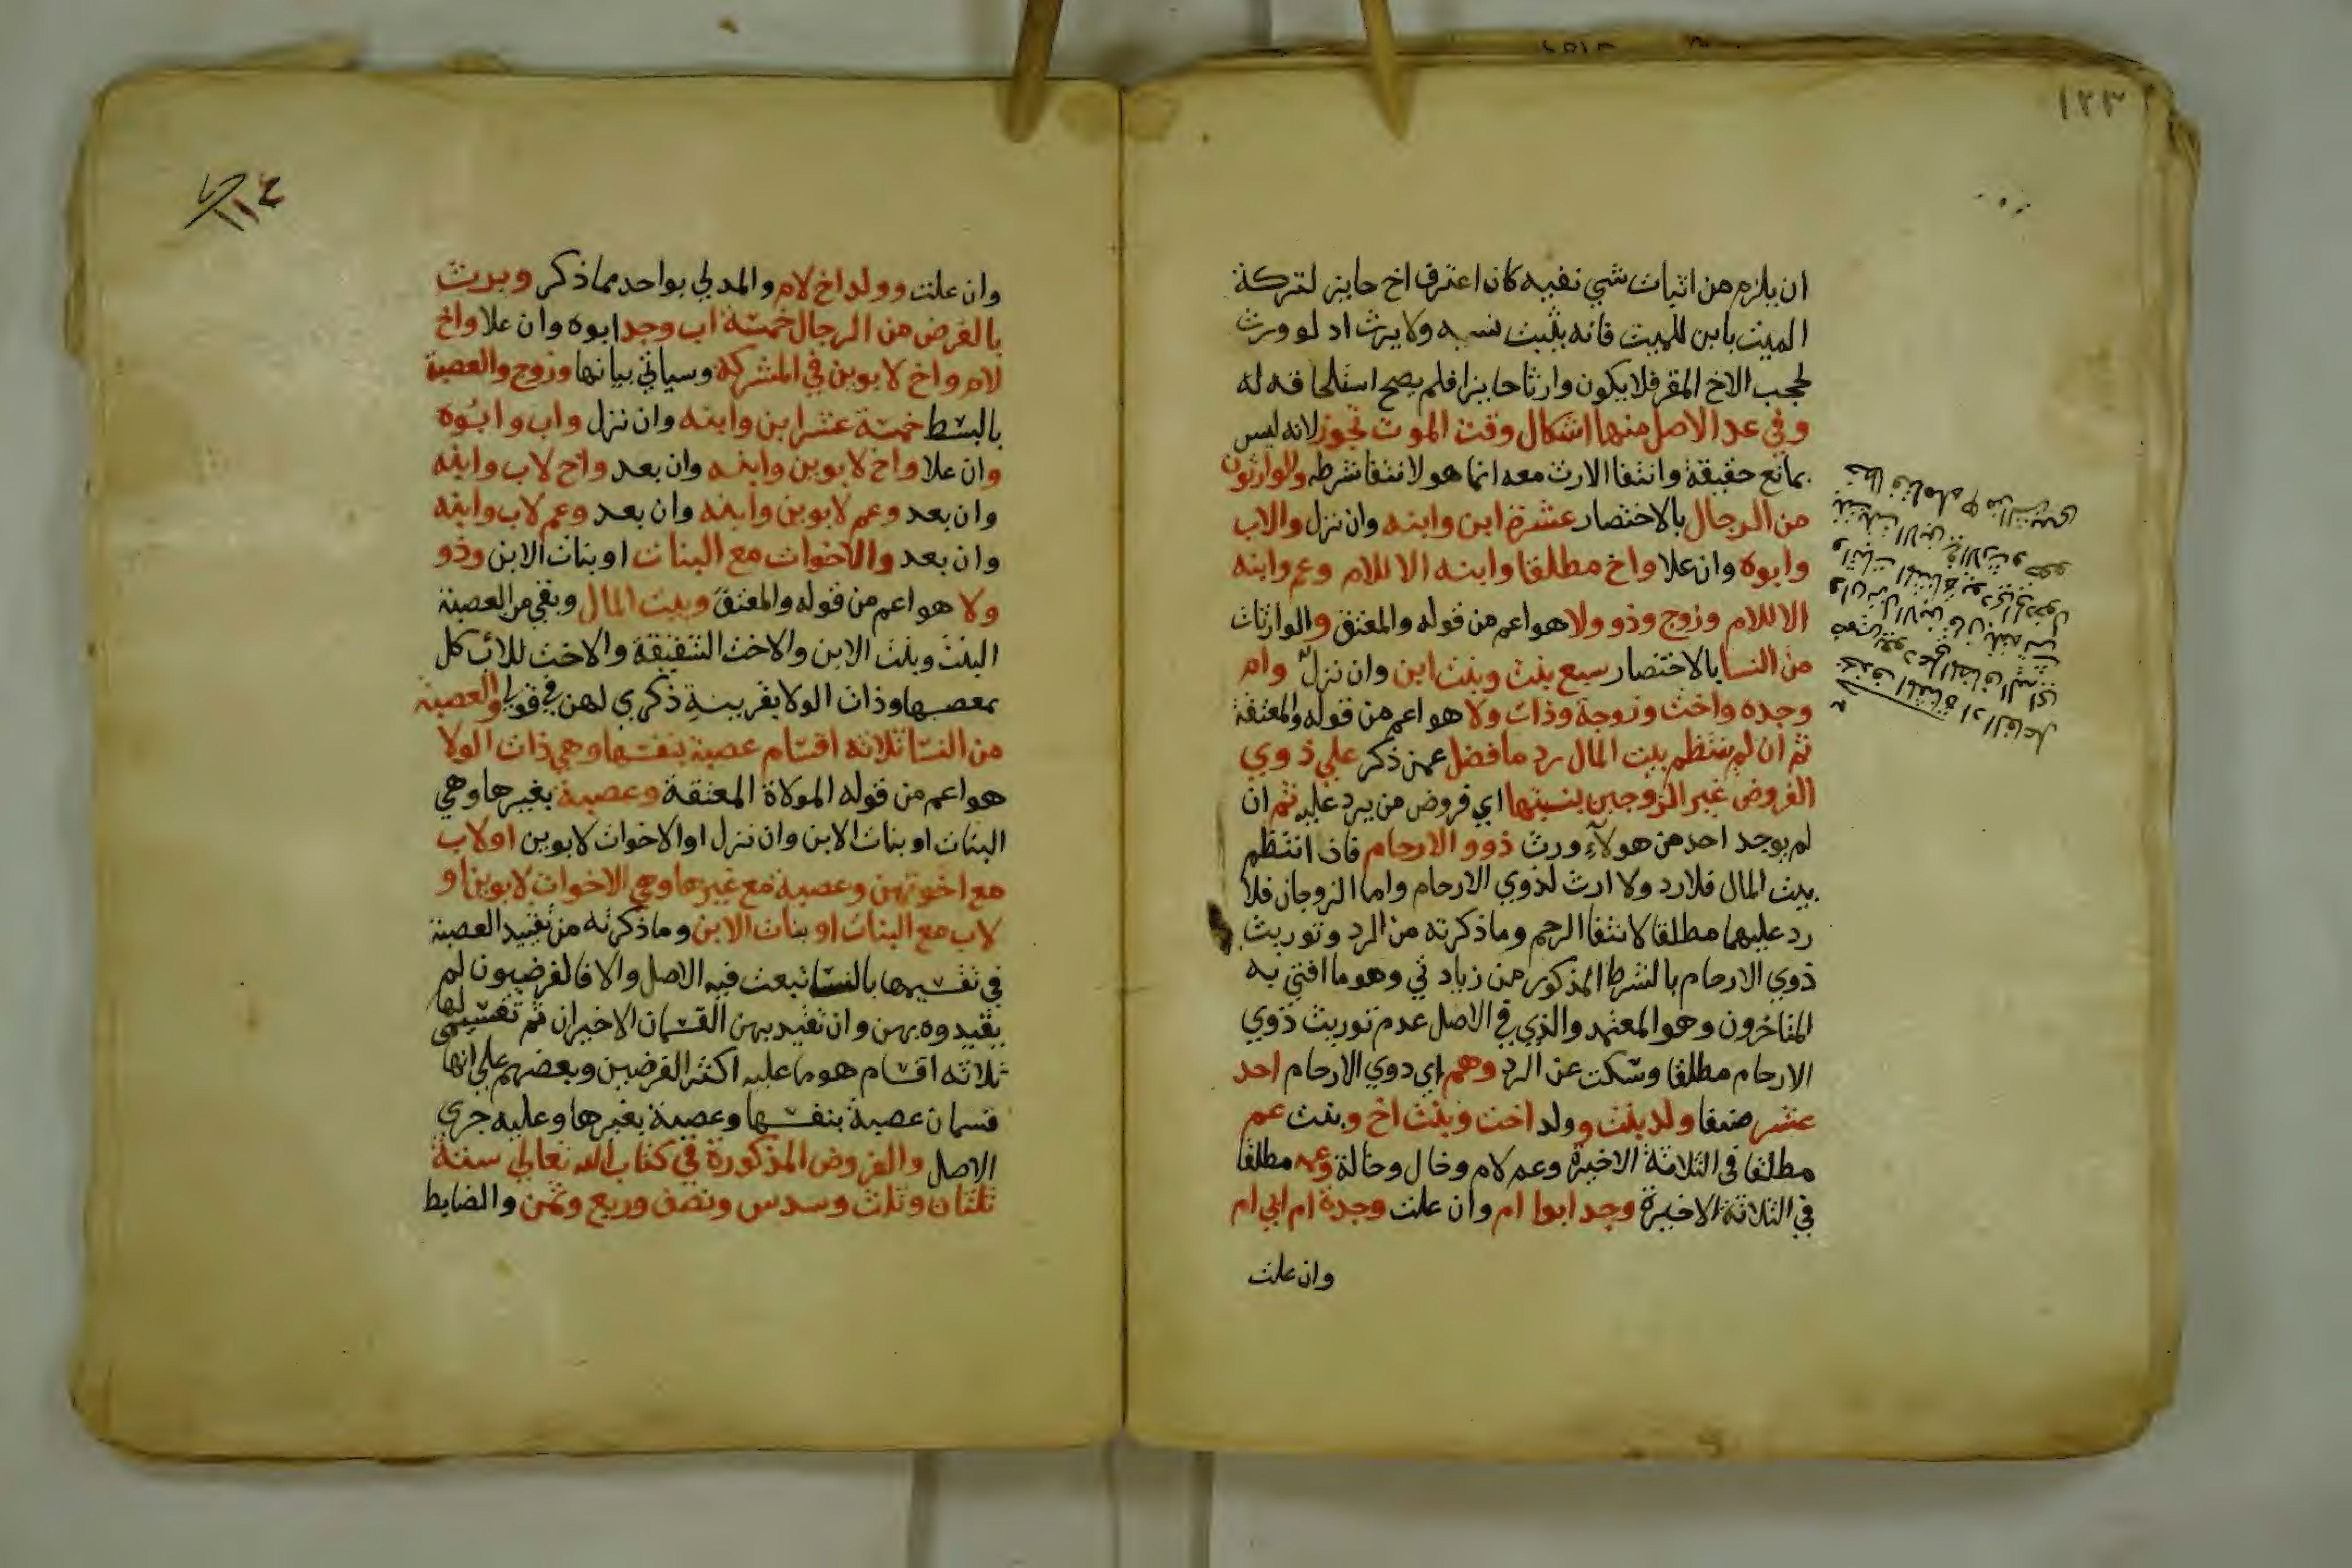 ١٢٣
ان يلزم من اثبات شي نفيه كان اعترف اخ حايز لتركة
الميت بابن للميت فانه يثبت نسبه ولا يرث اد لو ورث
لحجب الاخ المقر فلا يكون وارثا حايزا فلم يصح استلحاقه له
وفي عد الاصل منها اشكال وقت الموت تجوز لانه ليس
بمانع حقيقة وانتفا الارث معه انما هو لانتفا شرطه والوارثون
من الرجال بالاختصار عشرة ابن وابنه وان نزل والاب
وابوه وان علا واخ مطلقا وابنه الا للام وعم وابنه
الا للام وزوج وذو ولا هو اعم من قوله والمعتق والوارثات
من النسا بالاختصار سبع بنت وبنت ابن وان نزل وام
وجده واخت وزوجة وذات ولا هو اعم من قوله والمعتقة
ثم ان لم ينتظم بيت المال رد ما فضل عمن ذكر علي ذوي
الفروض غير الزوجين بنسبتها اي فروض من يرد عليه ثم ان
لم يوجد احد من هولآء ورث ذوو الارحام فان انتظم
بيت المال فلا رد ولا ارث لذوي الارحام واما الزوجان فلا
رد عليهما مطلقا لانتفا الرحم وما ذكرته من الرد وتوريث
ذوي الارحام بالشرط المذكور من زيادتي وهو ما افتي به
المتاخرون وهو المعتمد والذي في الاصل عدم توريث ذوي
الارحام مطلقا وسكت عن الرد وهم اي دوي الارحام احد
عشر صنفا ولد بنت وولد اخت وبنت اخ وبنت عم
مطلقا في الثلاثة الاخيرة وعم لام وخال وخالة وعمة مطلقا
في الثلاثة الاخيرة وجد ابوا ام وان علت وجدة ام ابي ام
وان علت
وان علت وولد اخ لام والمدلي بواحد مما ذكر ويرث
بالفرض من الرجال خمسة اب وجد ابوه وان علا واخ
لام واخ لابوين في المشركه وسياتي بيانها وزوج والعصبة
بالبسط خمسة عشر ابن وابنه وان نزل واب وابوه
وان علا واخ لابوين وابنه وان بعد واخ لاب وابنه
وان بعد وعم لابوين وابنه وان بعد وعم لاب وابنه
وان بعد والاخوات مع البنات او بنات الابن وذو
ولا هو اعم من قوله والمعتق وبيت المال وبقي من العصبة
البنت وبنت الابن والاخت الشقيقة والاخت للاب كل
بمعصبها وذات الولا بقرينة ذكري لهن في قولي والعصبة
من النسا ثلاثه اقسام عصبة بنفسها وهي ذات الولا
هو اعم من قوله المولاة المعتقة وعصبة بغيرها وهي
البنات او بنات الابن وان نزل او الاخوات لابوين او لاب
مع اخوتهن وعصبة مع غيرها وهي الاخوات لابوين او
لاب مع البنات او بنات الابن وما ذكرته من تقييد العصبة
في تقسيمها بالنسا تبعت فيه الاصل والا فالفرضيون لم
يقيدوه بهن وان تقيد بهن القسمان الاخيران ثم تقسيمي لها
ثلاثه اقسام هو ما عليه اكثر الفرضيين وبعضهم علي انها
قسمان عصبة بنفسها وعصبة بغيرها وعليه جري
الاصل والفروض المذكورة في كتاب الله تعالي ستة
ثلثان وثلث وسدس ونصف وربع وثمن والضابط